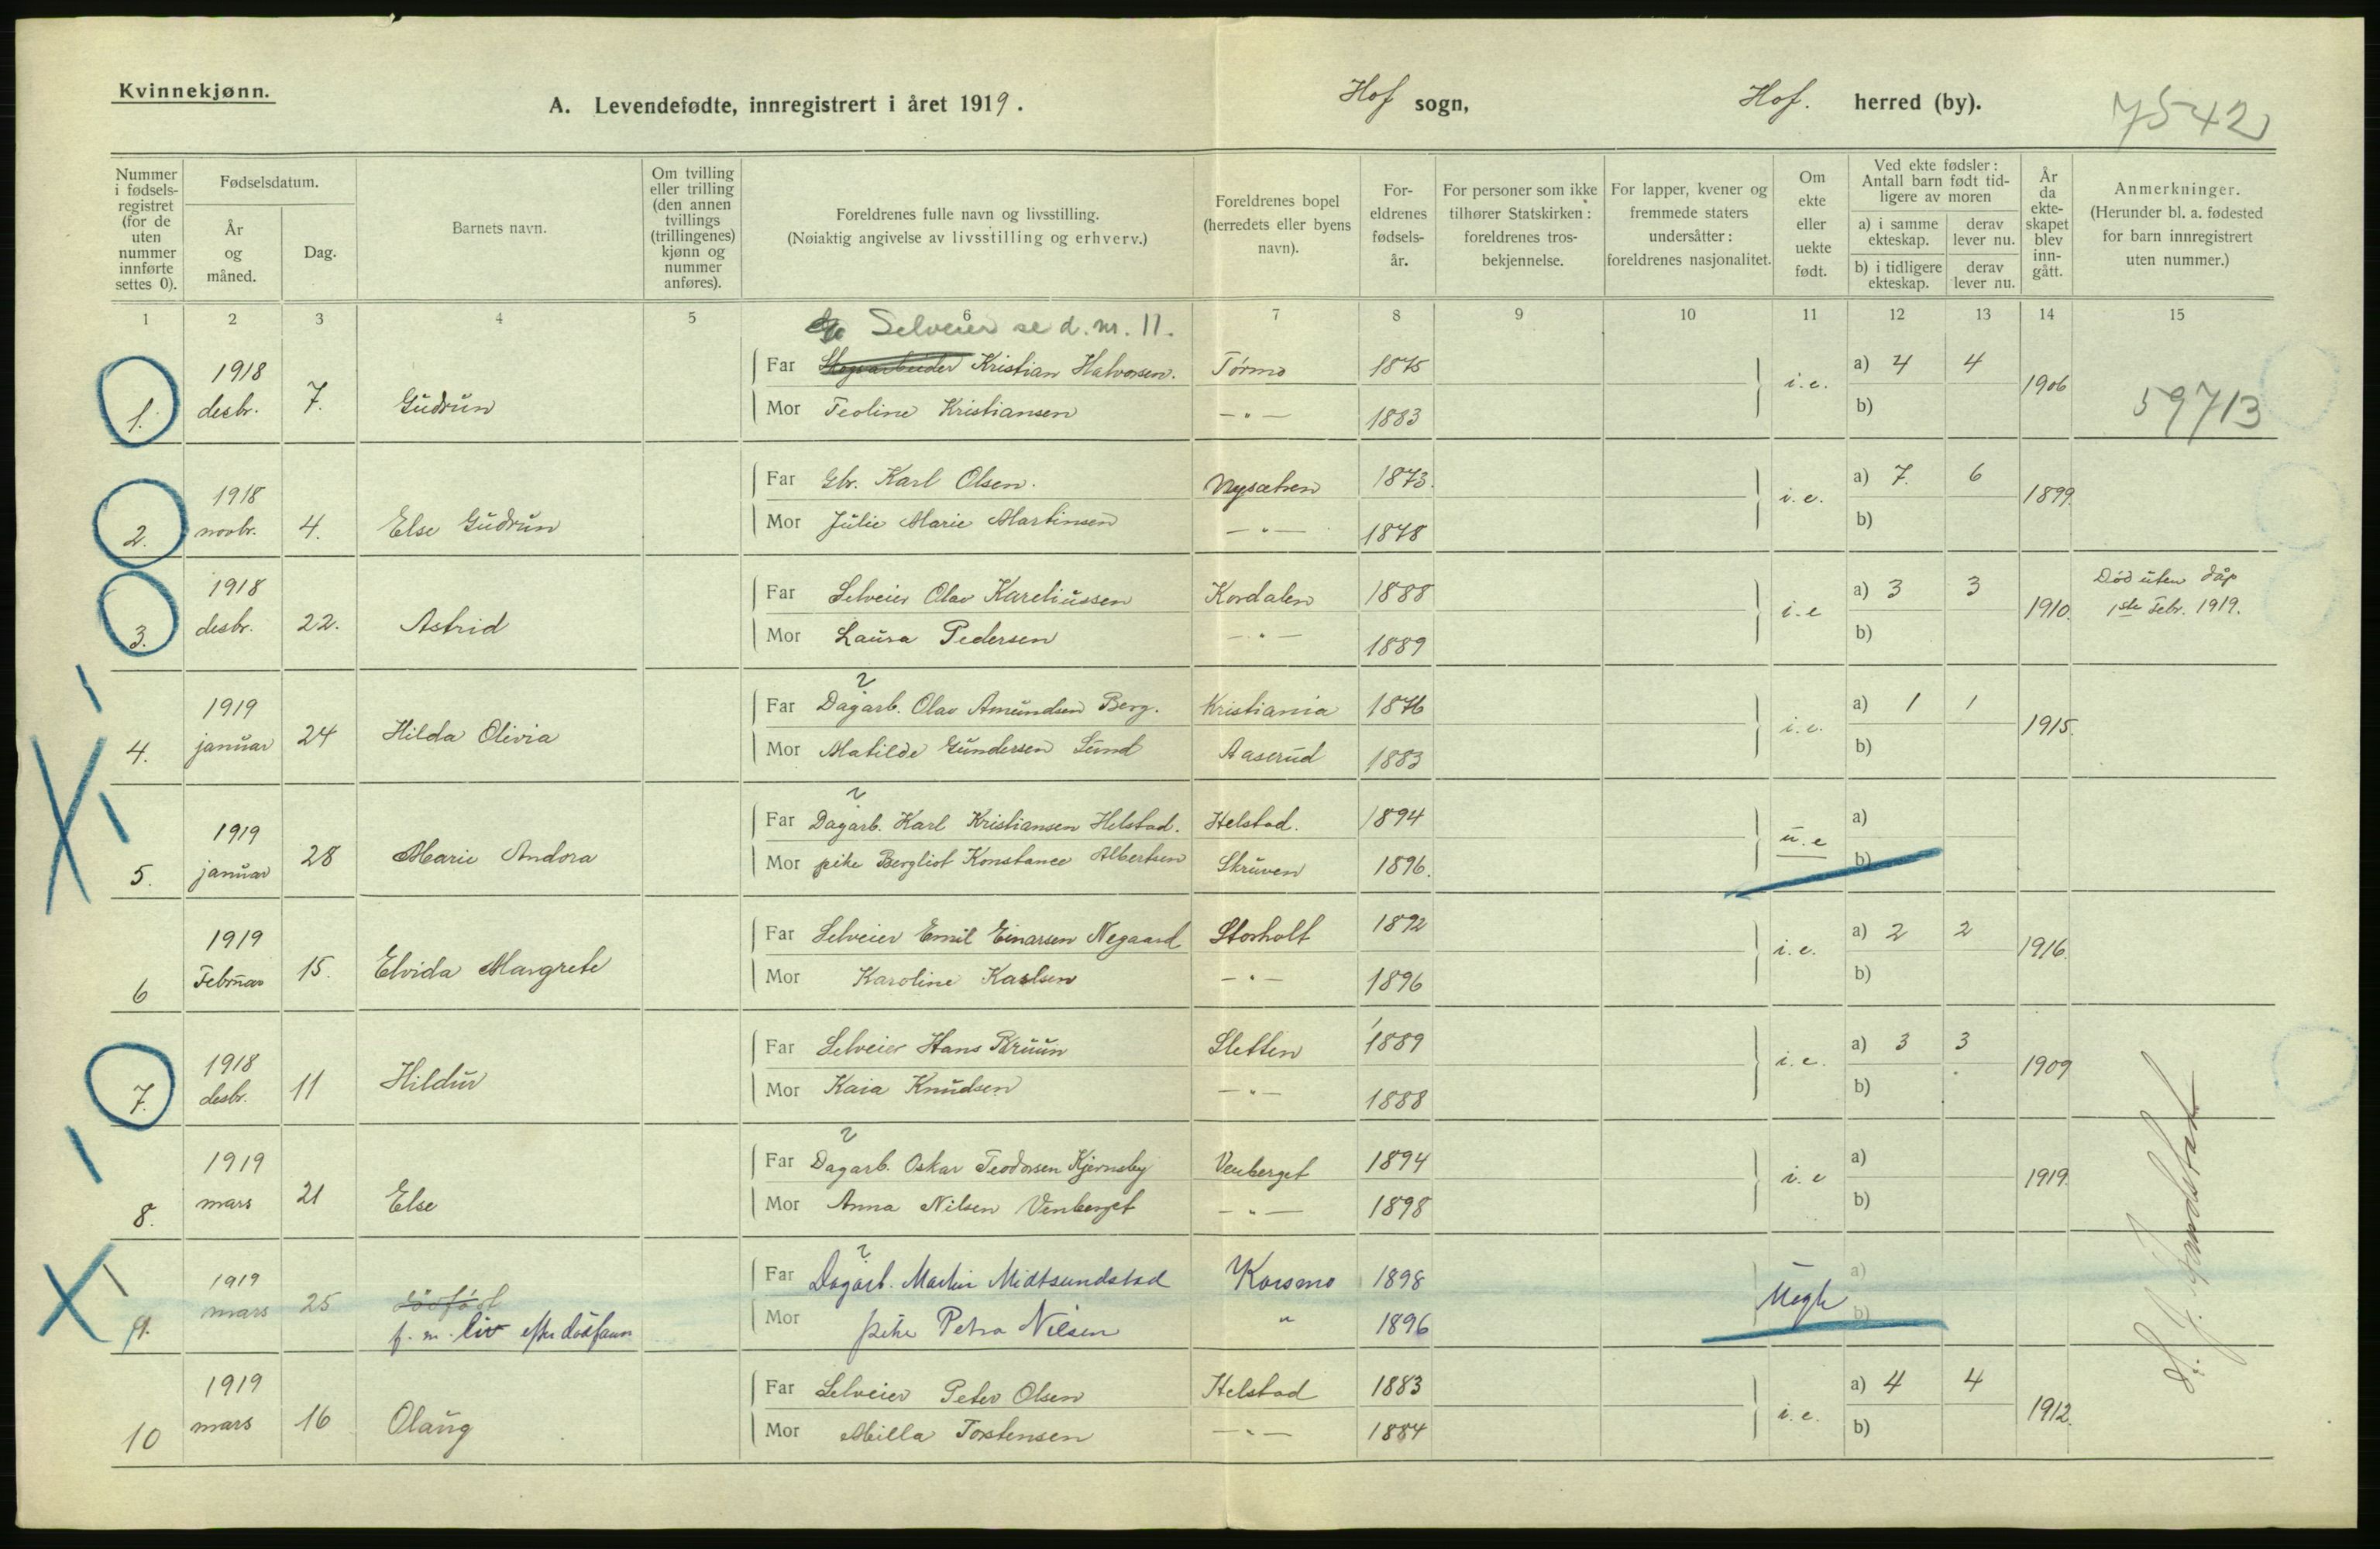 Kvinnekjønn.
A. Levendefødte, innregistrert i året 1919. Hof sogn, Hof. herred (by).
7542
Nummer i fødselsregistret (for de uten nummer innførte settes 0).
Fødselsdatum.
År og måned.
Dag.
Barnets navn.
Om tvilling eller trilling (den annen tvillings (trillingenes) kjønn og nummer anføres).
Foreldrenes fulle navn og livsstilling.
(Nøiaktig angivelse av livsstilling og erhverv.)
Foreldrenes bopel (herredets eller byens navn).
Foreldrenes fødselsår.
For personer som ikke tilhører Statskirken: foreldrenes trosbekjennelse.
For lapper, kvener og fremmede staters undersåtter: foreldrenes nasjonalitet.
Om ekte eller uekte født.
Ved ekte fødsler: Antall barn født tidligere av moren
a) i samme ekteskap. derav lever nu.
b) i tidligere ekteskap. derav lever nu.
År da ekteskapet blev inngått.
Anmerkninger.
(Herunder bl. a. fødested for barn innregistrert uten nummer.)
1 2 3 4 5 6 7 8 9 10 11 12 13 14 15
Selveier se d. nr. 11.
1. 1918 desbr. 7. Gudrun
Far Skogarbeider Kristian Halvorsen. Tørmo 1875 i.e. a) 4 4 1906
Mor Teoline Kristiansen —"— 1883 b)
59713
2. 1918 novbr. 4. Else Gudrun
Far Gbr. Karl Olsen. Nysætren 1873. i.e. a) 7. 6 1899.
Mor Julie Marie Martinsen —"— 1878 b)
3. 1918 desbr. 22. Astrid
Far Selveier Olav Kareliussen Kordalen 1888 i.e a) 3 3 1910.
Mor Laura Pedersen —"— 1889 b)
Død uten dåp
1ste Febr. 1919.
4. 1919 januar 24 Hilda Olivia
Far Dagarb. Olav Amundsen Berg. Kristiania 1876 i.e. a) 1 1 1915.
Mor Matilde Gundersen Lund Aaserud 1883 b)
5. 1919 januar 28 Marie Andora
Far Dagarb. Karl Kristiansen Helstad. Helstad. 1894 u.e a)
Mor pike Bergliot Konstance Albertsen Skruven 1896. b)
6 1919 Februar 15. Elvida Margrete
Far Selveier Emil Einarsen Negaard Storholt 1892 i.e. a) 2 2 1916.
Mor Karoline Karlsen —"— 1896 b)
7. 1918 desbr. 11 Hildur
Far Selveier Hans Bruun Sletten 1889 i.e. a) 3 3 1909
Mor Kaia Knudsen —"— 1888 b)
8. 1919 mars 21 Else
Far Dagarb. Oskar Teodorsen Kjernsby Venberget 1894 i.e a) 1919.
Mor Anna Nilsen Venberget —"— 1898 b)
9. 1919 mars 25 dødfødt
f. m. liv efter dødfaun
Far Dagarb. Martin Midtsundstad Korsmo 1898 Uegte a)
Mor pike Petra Nilsen " 1896 b)
10 1919 mars 16 Olaug
Far Selveier Peter Olsen Helstad 1883 i.e. a) 4 4 1912.
Mor Milla Torstensen —"— 1884 b)